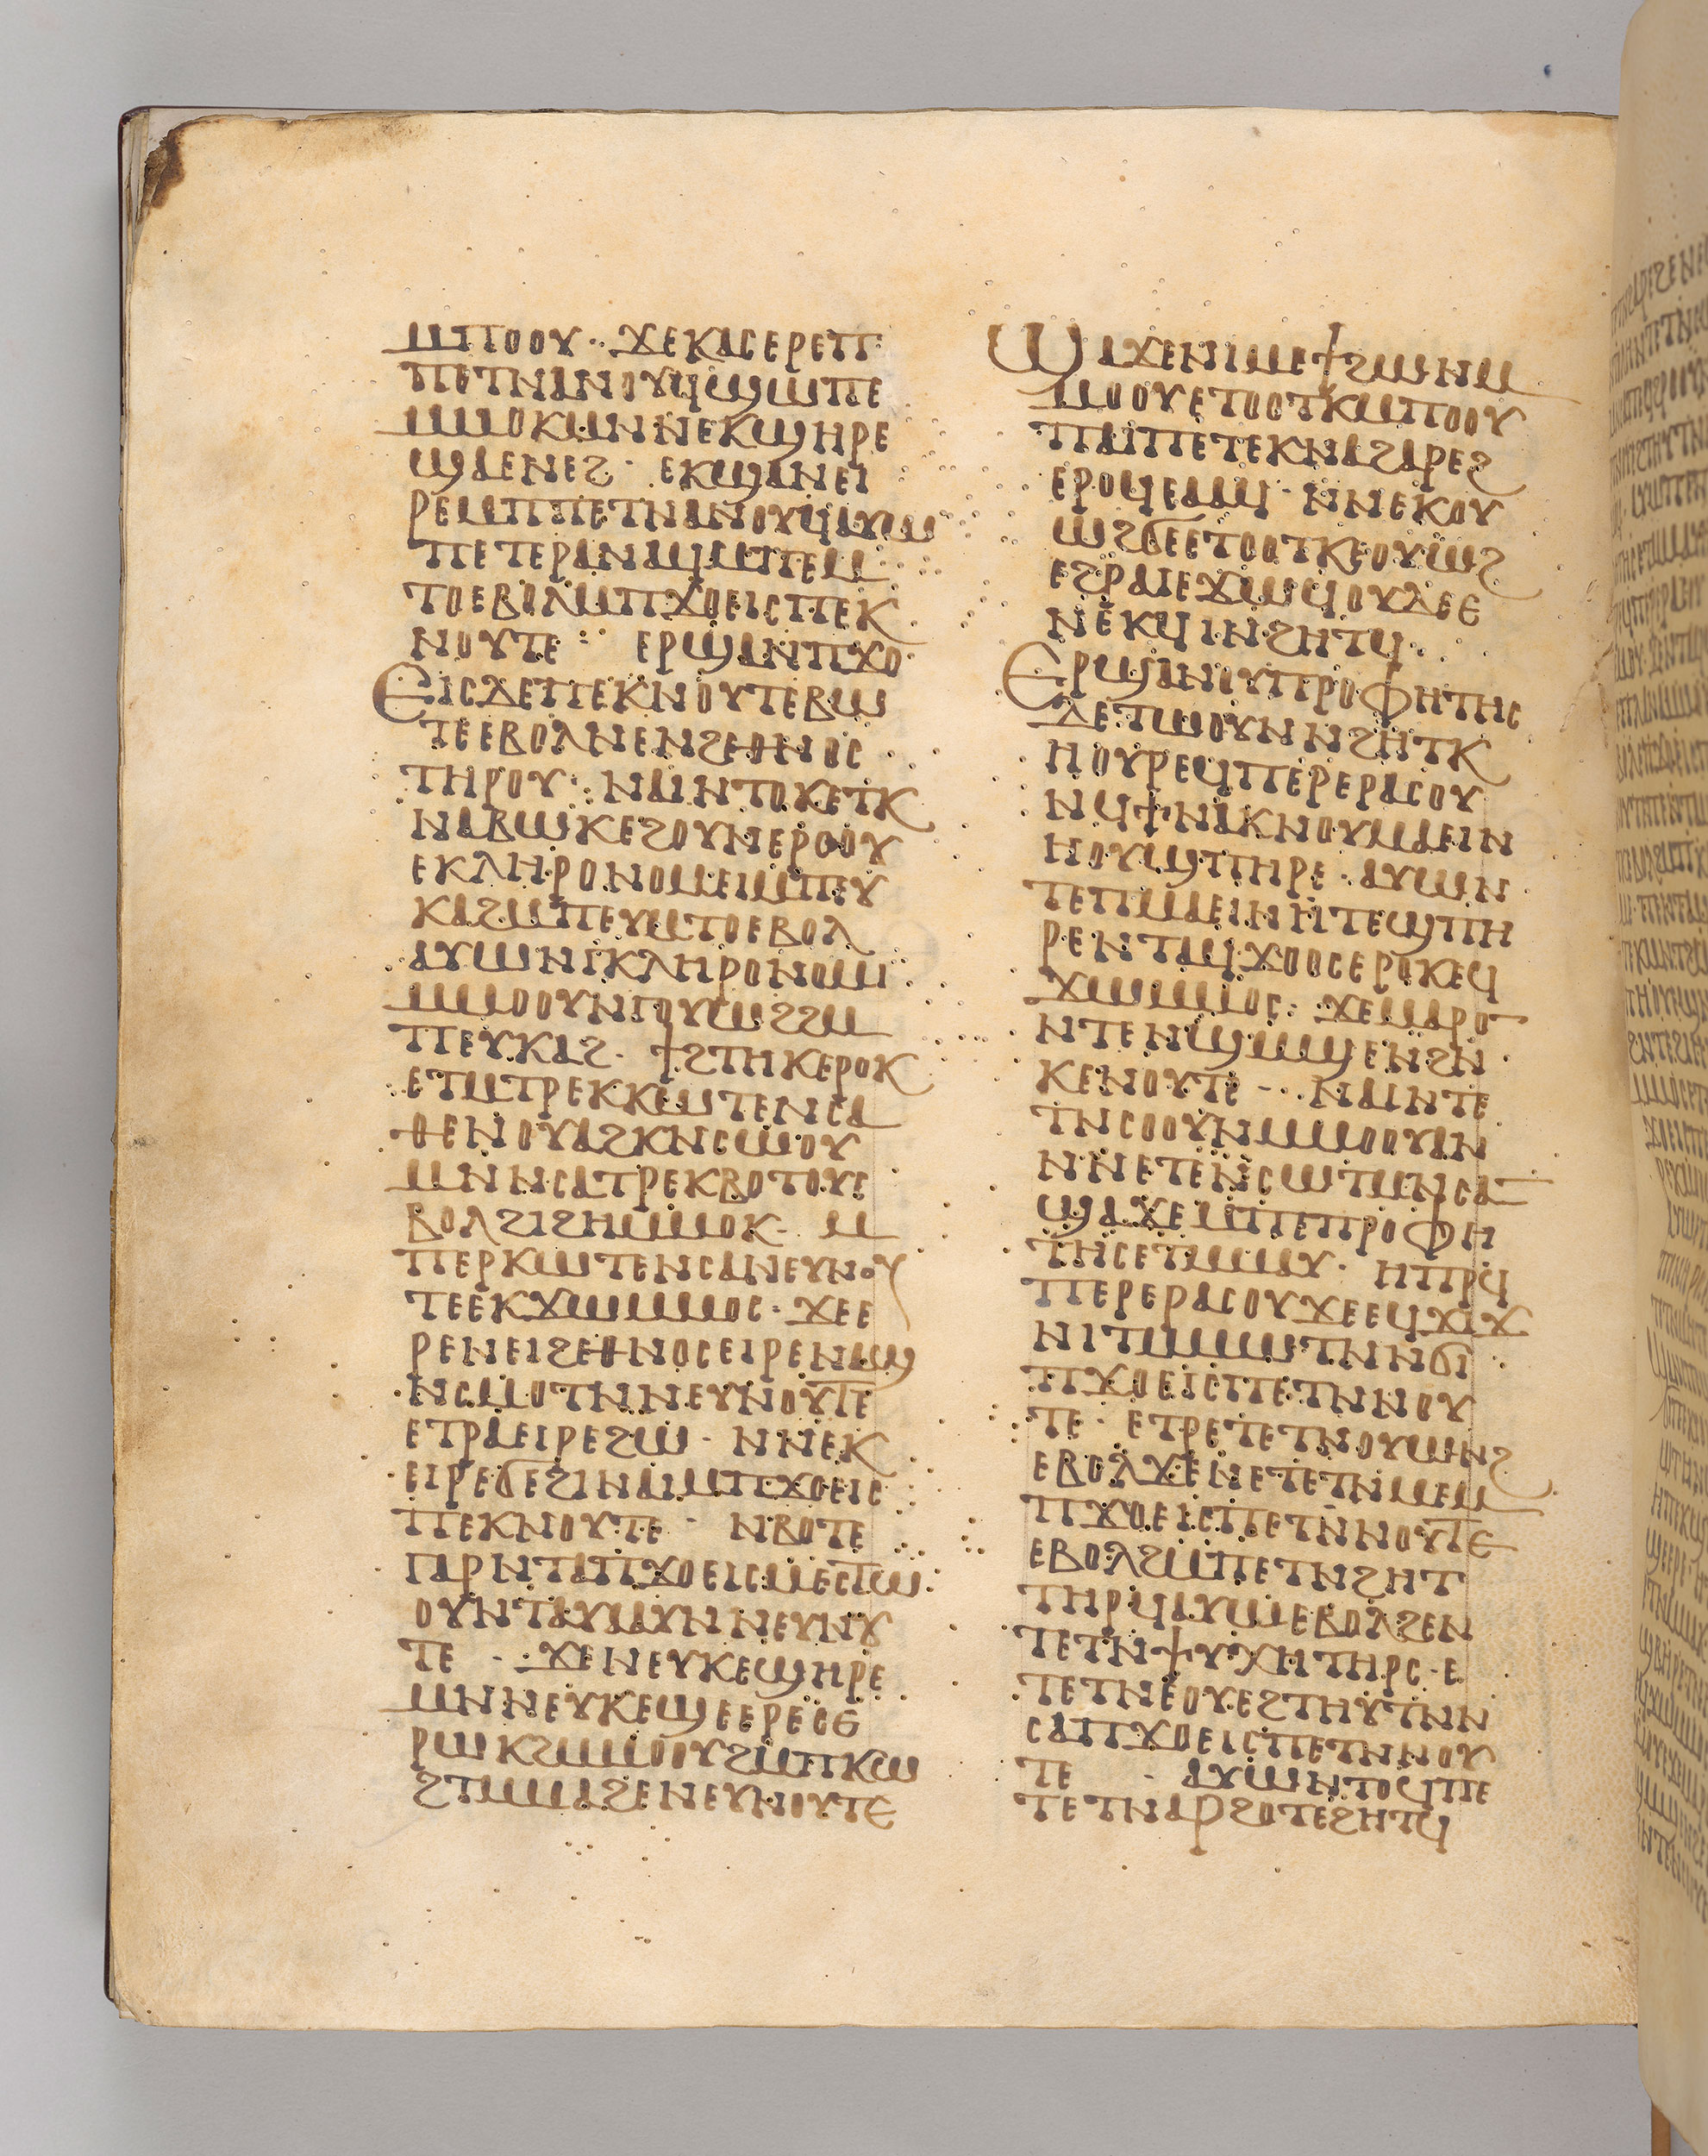 ⲙⲡⲟⲟⲩ· ϫⲉⲕⲁⲥⲉⲣⲉⲡ
ⲡⲉⲧⲛⲁⲛⲟⲩϥϣⲱⲡⲉ
ⲙⲙⲟⲕⲙⲛⲛⲉⲕϣⲏⲣⲉ
ϣⲁⲉⲛⲉϩ· ⲉⲕϣⲁⲛⲉⲓ
ⲣⲉⲙⲡⲡⲉⲧⲛⲁⲛⲟⲩϥⲁⲩⲱ
ⲡⲉⲧⲉⲣⲁⲛⲁϥⲙⲡⲉⲙ
ⲧⲟⲉⲃⲟⲗⲙⲡϫⲟⲉⲓⲥⲡⲉⲕ
ⲛⲟⲩⲧⲉ: ⲉⲣϣⲁⲛⲡϫⲟ
ⲉⲓⲥⲇⲉⲡⲉⲕⲛⲟⲩⲧⲉⲃⲱ
ⲧⲉⲉⲃⲟⲗⲛⲉⲛϩⲉⲑⲛⲟⲥ
ⲧⲏⲣⲟⲩ: ⲛⲁⲓⲛⲧⲟⲕⲉⲧⲕ
ⲛⲁⲃⲱⲕⲉϩⲟⲩⲛⲉⲣⲟⲟⲩ
ⲉⲕⲗⲏⲣⲟⲛⲟⲙⲉⲓⲙⲡⲉⲩ
ⲕⲁϩⲙⲡⲉⲩⲙⲧⲟⲉⲃⲟⲗ
ⲁⲩⲱⲛⲅⲕⲗⲏⲣⲟⲛⲟⲙⲓ
ⲙⲙⲟⲟⲩⲛⲅⲟⲩⲱϩϩⲙ
ⲡⲉⲩⲕⲁϩ· ϯϩⲧⲏⲕⲉⲣⲟⲕ
ⲉⲧⲙⲧⲣⲉⲕⲕⲱⲧⲉⲛⲥⲁ
ⲑⲉⲛⲟⲩⲁϩⲕⲛⲥⲱⲟⲩ
ⲙⲛⲛⲥⲁⲧⲣⲉⲕⲃⲟⲧⲟⲩⲉ
ⲃⲟⲗϩⲓϩⲏⲙⲙⲟⲕ· ⲙ
ⲡⲉⲣⲕⲱⲧⲉⲛⲥⲁⲛⲉⲩⲛⲟⲩ
ⲧⲉⲉⲕϫⲱⲙⲙⲟⲥ· ϫⲉⲉ
ⲣⲉⲛⲉⲓϩⲉⲑⲛⲟⲥⲉⲓⲣⲉⲛⲁϣ
ⲛⲥⲙⲟⲧⲛⲛⲉⲩⲛⲟⲩⲧⲉ
ⲉⲧⲣⲁⲉⲓⲣⲉϩⲱ· ⲛⲛⲉⲕ
ⲉⲓⲣⲉϭⲉϩⲓⲛⲁⲓⲙⲡϫⲟⲉⲓⲥ
ⲡⲉⲕⲛⲟⲩⲧⲉ· ⲛⲃⲟⲧⲉ
ⲅⲁⲣⲛⲧⲁⲡϫⲟⲉⲓⲥⲙⲉⲥⲧⲱ
ⲟⲩⲛⲧⲁⲩⲁⲁⲩⲛⲛⲉⲩⲛⲟⲩ
ⲧⲉ · ϫⲉⲛⲉⲩⲕⲉϣⲏⲣⲉ
ⲙⲛⲛⲉⲩⲕⲉϣⲉⲉⲣⲉⲥⲉ
ⲣⲱⲕϩⲙⲙⲟⲟⲩϩⲙⲡⲕⲱ
ϩⲧⲙⲙⲁϩⲉⲛⲉⲩⲛⲟⲩⲧⲉ
ϣⲁϫⲉⲛⲓⲙⲉϯϩⲱⲛⲙ
ⲙⲟⲟⲩⲉⲧⲟⲟⲧⲕⲙⲡⲟⲟⲩ
ⲡⲁⲓⲡⲉⲧⲉⲕⲛⲁϩⲁⲣⲉϩ
ⲉⲣⲟϥⲉⲁⲁϥ· ⲛⲛⲉⲕⲟⲩ
ⲱϩϭⲉⲉⲧⲟⲟⲧⲕⲉⲟⲩⲱϩ
ⲉϩⲣⲁⲓⲉϫⲱϥⲟⲩⲇⲉⲉ
ⲛⲉⲕϥⲓⲛϩⲏⲧϥ·
ⲉⲣϣⲁⲛⲟⲩⲡⲣⲟⲫⲏⲧⲏⲥ
ⲇⲉⲧⲱⲟⲩⲛⲛϩⲏⲧⲕ
ⲏⲟⲩⲣⲉϥⲡⲉⲣⲉⲣⲁⲥⲟⲩ
ⲛϥϯⲛⲁⲕⲛⲟⲩⲙⲁⲉⲓⲛ
ⲏⲟⲩϣⲡⲏⲣⲉ· ⲁⲩⲱⲛ
ⲧⲉⲡⲙⲁⲉⲓⲛⲏⲧⲉϣⲡⲏ
ⲣⲉⲛⲧⲁϥϫⲟⲟⲥⲉⲣⲟⲕⲉϥ
ϫⲱⲙⲙⲟⲥ: ϫⲉⲙⲁⲣⲟ
ⲛⲧⲉⲛϣⲙϣⲉⲛϩⲛ
ⲕⲉⲛⲟⲩⲧⲉ-· ⲛⲁⲓⲛⲧⲉ
ⲧⲛⲥⲟⲟⲩⲛⲙⲙⲟⲟⲩⲁⲛ
ⲛⲛⲉⲧⲉⲛⲥⲱⲧⲙⲛⲥⲁ
ϣⲁϫⲉⲙⲡⲉⲡⲣⲟⲫⲏ
ⲧⲏⲥⲉⲧⲙⲙⲁⲩ· ⲏⲡⲣϥ
ⲡⲉⲣⲉⲣⲁⲥⲟⲩϫⲉⲉϥϫⲓϫ
ⲛⲓⲧⲙⲙⲱⲧⲛⲛϭⲓ
ⲡϫⲟⲉⲓⲥⲡⲉⲧⲛⲛⲟⲩ
ⲧⲉ· ⲉⲧⲣⲉⲧⲉⲧⲛⲟⲩⲱⲛϩ
ⲉⲃⲟⲗϫⲉⲛⲉⲧⲉⲧⲛⲙⲉⲙ
ⲡϫⲟⲉⲓⲥⲡⲉⲧⲛⲛⲟⲩⲧⲉ
ⲉⲃⲟⲗϩⲙⲡⲉⲧⲛϩⲏⲧ
ⲧⲏⲣϥⲁⲩⲱⲉⲃⲟⲗϩⲉⲛ
ⲧⲉⲧⲛⲯⲩⲭⲏⲧⲏⲣⲥ·ⲉ
ⲧⲉⲧⲛⲉⲟⲩⲉϩⲧⲏⲩⲧⲛⲛ
ⲥⲁⲡϫⲟⲉⲓⲥⲡⲉⲧⲛⲛⲟⲩ
ⲧⲉ · ⲁⲩⲱⲛⲧⲟϥⲡⲉ
ⲧⲉⲧⲛⲁⲣϩⲟⲧⲉϩⲏⲧϥ